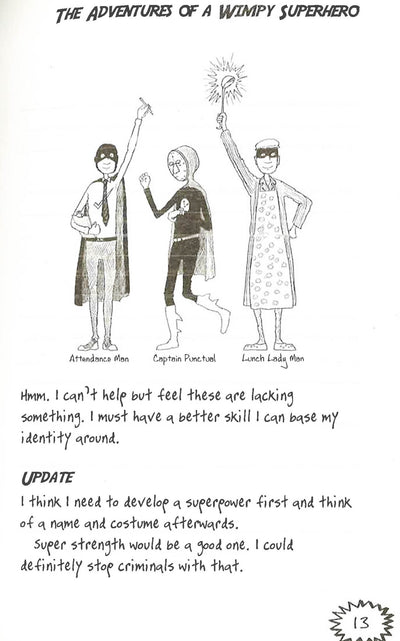 THE ADVENTURES OF A WIMPY SUPERHERO
Attendance Man Captain Punctual Lunch Lady Man
Hmm. I can't help but feel these are lacking
something. I must have a better skill I can base my
identity around.
UPDATE
I think I need to develop a superpower first and think
of a name and costume afterwards.
Super strength would be a good one. I could
definitely stop criminals with that.
13